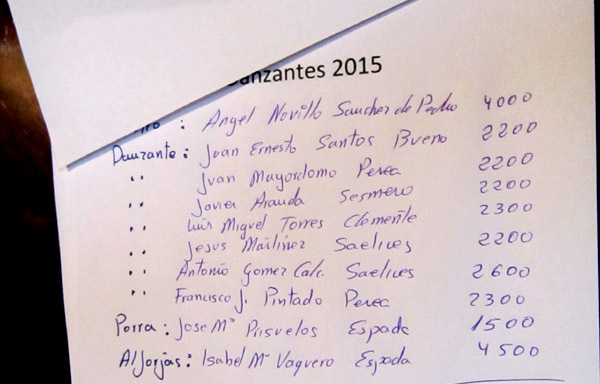 Danzantes 2015
: Angel Novillo Sanchez de Pedro 4000
Danzante: Juan Ernesto Santos Bueno 2200
" Juan Mayordomo Perea 2200
" Javier Aranda Sesmero 2200
" Luis Miguel Torres Clemente 2300
" Jesus Martinez Saelices 2200
" Antonio Gomez Calc. Saelices 2600
" Francisco J. Pintado Perea 2300
Porra: Jose Mª Espada 1500
Alforjas: Isabel Mª Vaquero Espada 4500